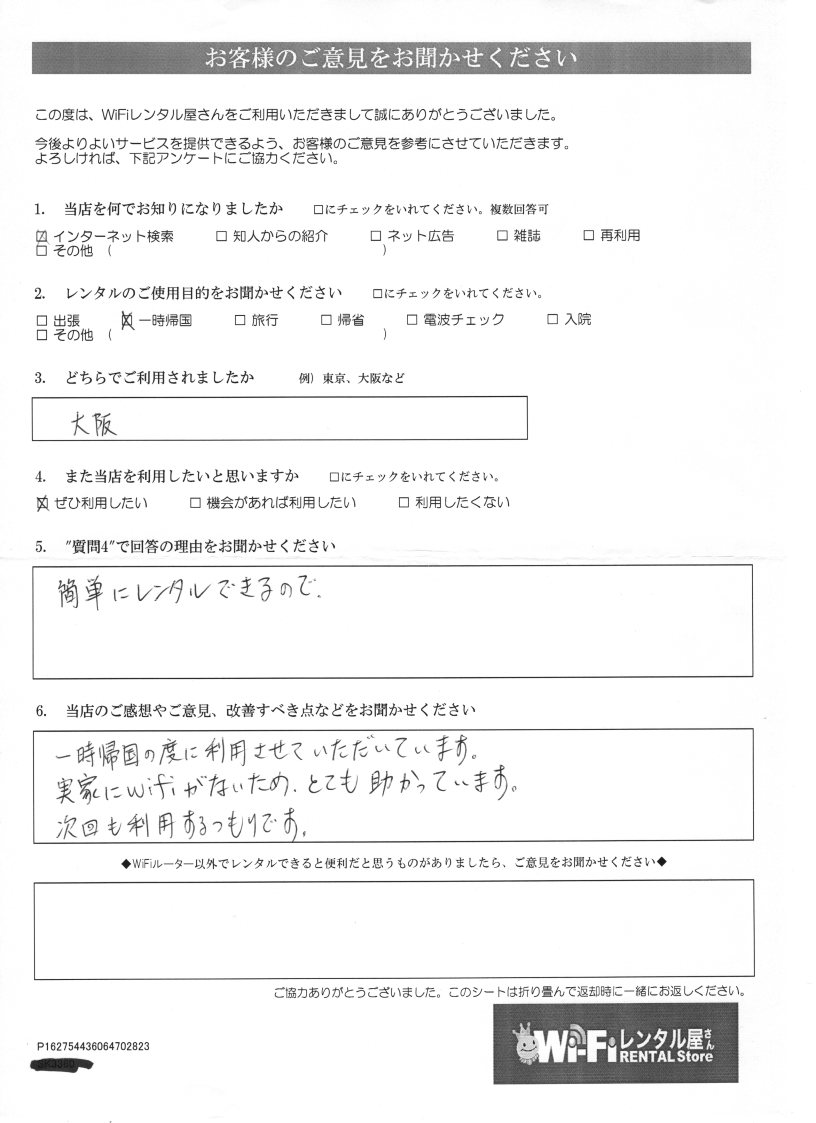 お客様のご意見をお聞かせください
この度は、WiFiレンタル屋さんをご利用いただきまして誠にありがとうございました。
今後よりよいサービスを提供できるよう、お客様のご意見を参考にさせていただきます。
よろしければ、下記アンケートにご協力ください。
1. 当店を何でお知りになりましたか □にチェックをいれてください。複数回答可
☑ インターネット検索 □ 知人からの紹介 □ ネット広告 □ 雑誌 □ 再利用
□ その他 ( )
2. レンタルのご使用目的をお聞かせください □にチェックをいれてください。
□ 出張 ☒ 一時帰国 □ 旅行 □ 帰省 □ 電波チェック □ 入院
□ その他 ( )
3. どちらでご利用されましたか 例) 東京、大阪など
大阪
4. また当店を利用したいと思いますか □にチェックをいれてください。
☒ ぜひ利用したい □ 機会があれば利用したい □ 利用したくない
5. ″質問4″で回答の理由をお聞かせください
簡単にレンタルできるので.
6. 当店のご感想やご意見、改善すべき点などをお聞かせください
一時帰国の度に利用させていただいています。
実家にwifiがないため、とても助かっています。
次回も利用するつもりです。
◆WiFiルーター以外でレンタルできると便利だと思うものがありましたら、ご意見をお聞かせください◆
ご協力ありがとうございました。このシートは折り畳んで返却時に一緒にお返しください。
P162754436064702823
Wi-Fiレンタル屋さん
RENTAL Store